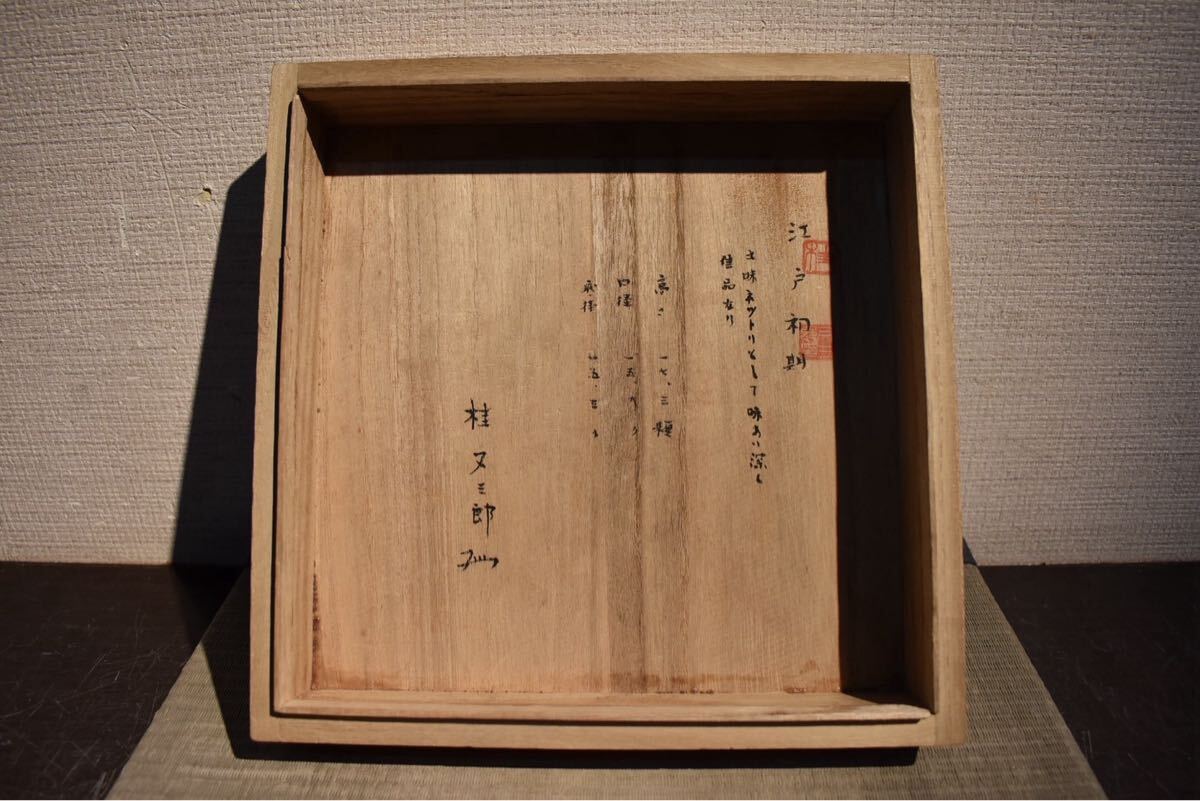 江戸初期
土味ネットリとして味あい深く
佳品なり
高さ 一七、三糎
口径 一五、
底径 五、
桂又三郎